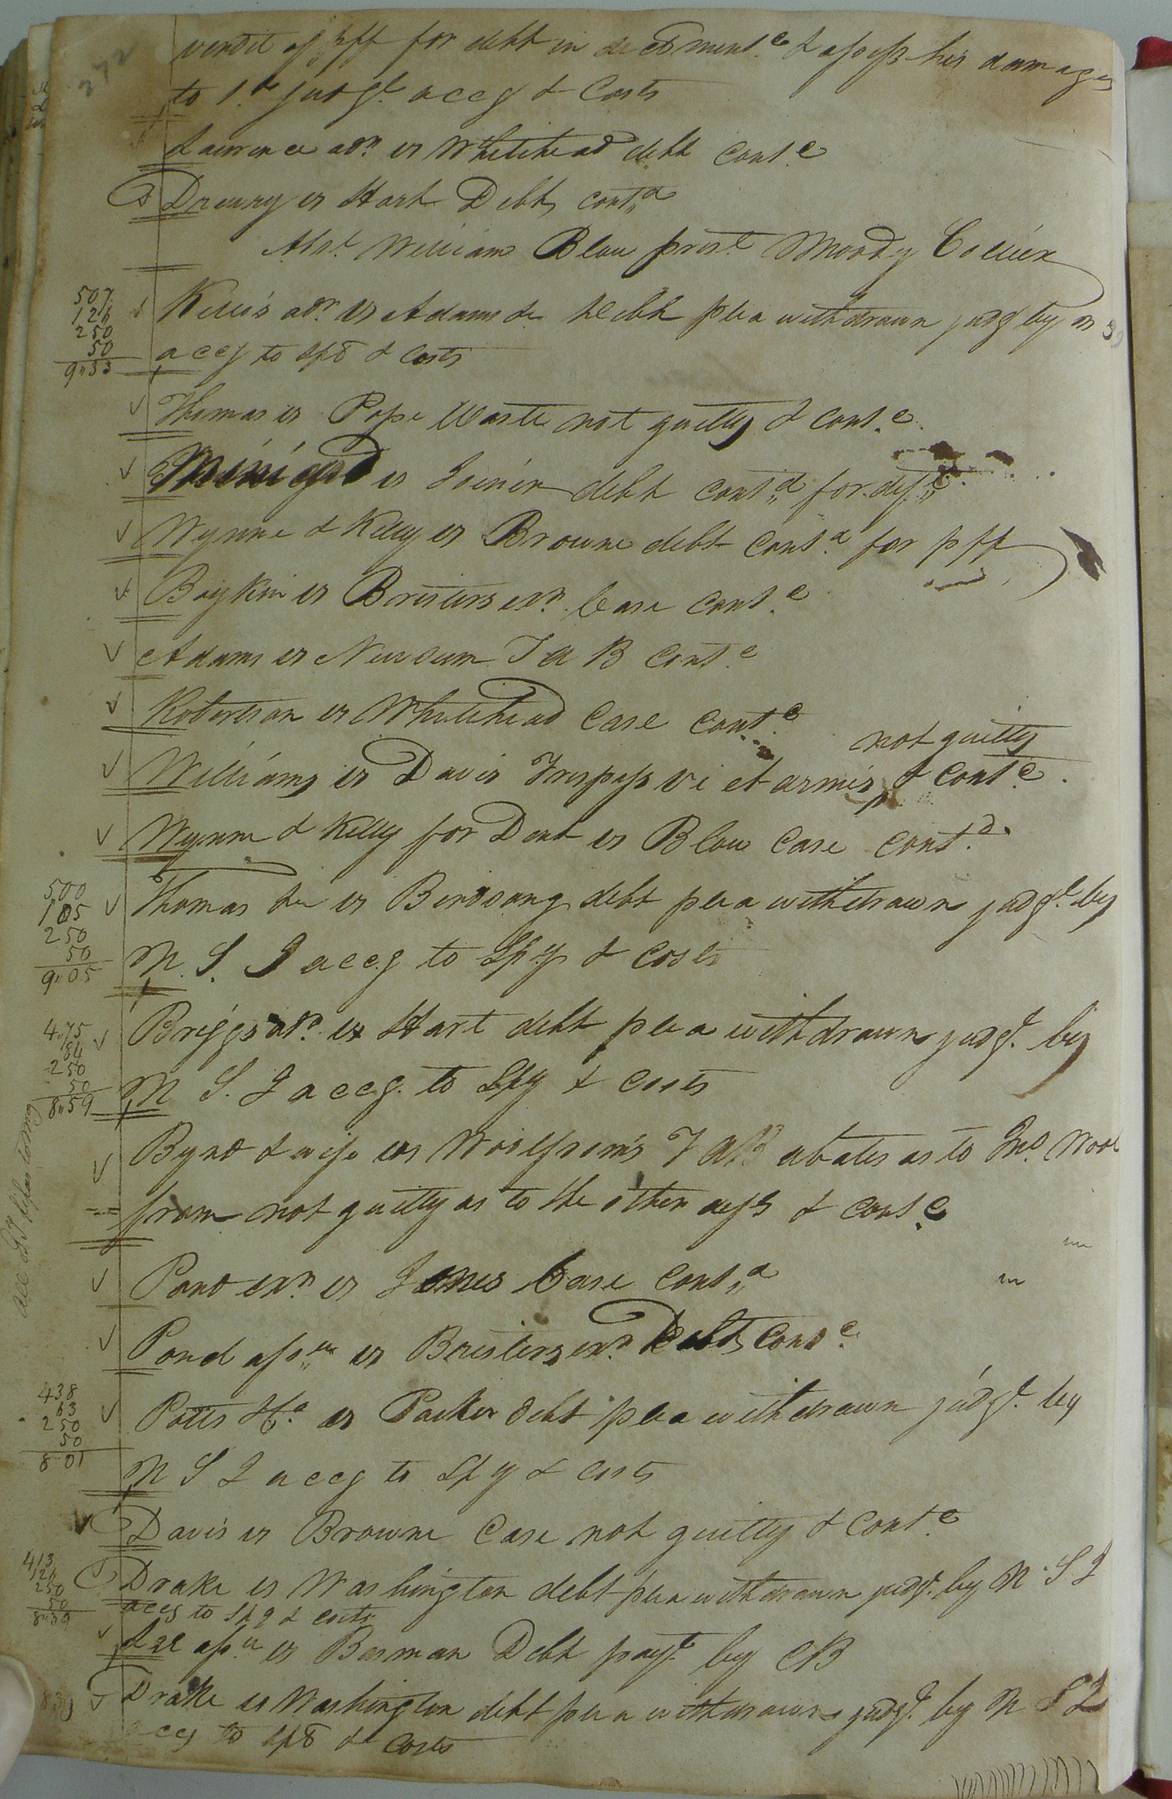 372
verdit of pff for debt in de ment.c & assess his damages
to 1.d judgt. accg & Costs
Lawrence adr. vs Whitehead debt cont.c
Drewry vs Hart Debt, cont.d
Abst. William Blow prest. Moody Collier
507
126
250
50
9"33
Adams debt plea withdrawn judgt by
accg to Sps & Costs
Thomas vs Pope Waste not guilty & cont.c
vs Joiner debt cont.d for deft
Wynne & Kelly vs Browne debt cont.d for pff
Boykin vs exr. Case cont.c
Adams vs Newsum T A B cont.c
Robertson vs Whitehead Case cont.c
not guilty
Williams vs Davis Trespass vi et armis, & cont.c
Wynne & Kelly for Dent vs Blow Case cont.d
500
105
250
50
9"05
Thomas vs Birdsong debt plea withdrawn judgt. by
N. S. I accg to Spy & Costs
475
84
250
50
8"59
Briggs adr. vs Hart debt plea withdrawn judgt. by
N S. I accg. to Spy & costs
Byrd & wife vs Woolfrom's T A B abates as to Jno. Wool
from not guilty as to the other defts & cont.c
Pond exr. vs Jones Case cont.d
Pond assee vs exr. Debt, cont.c
438
63
250
50
8 01
Potts vs Parker debt plea withdrawn judgt. by
N S I accg to Spy & costs
Davis vs Browne Case not guilty & cont.c
413
126
250
50
8"39
Drake vs Washington debt plea withdrawn judgt. by N S I
accg to Spy & costs
Lee assee vs Debt payt. by CB
839
Drake vs Washington debt plea withdrawn judgt. by N S I
accg to Sps & costs